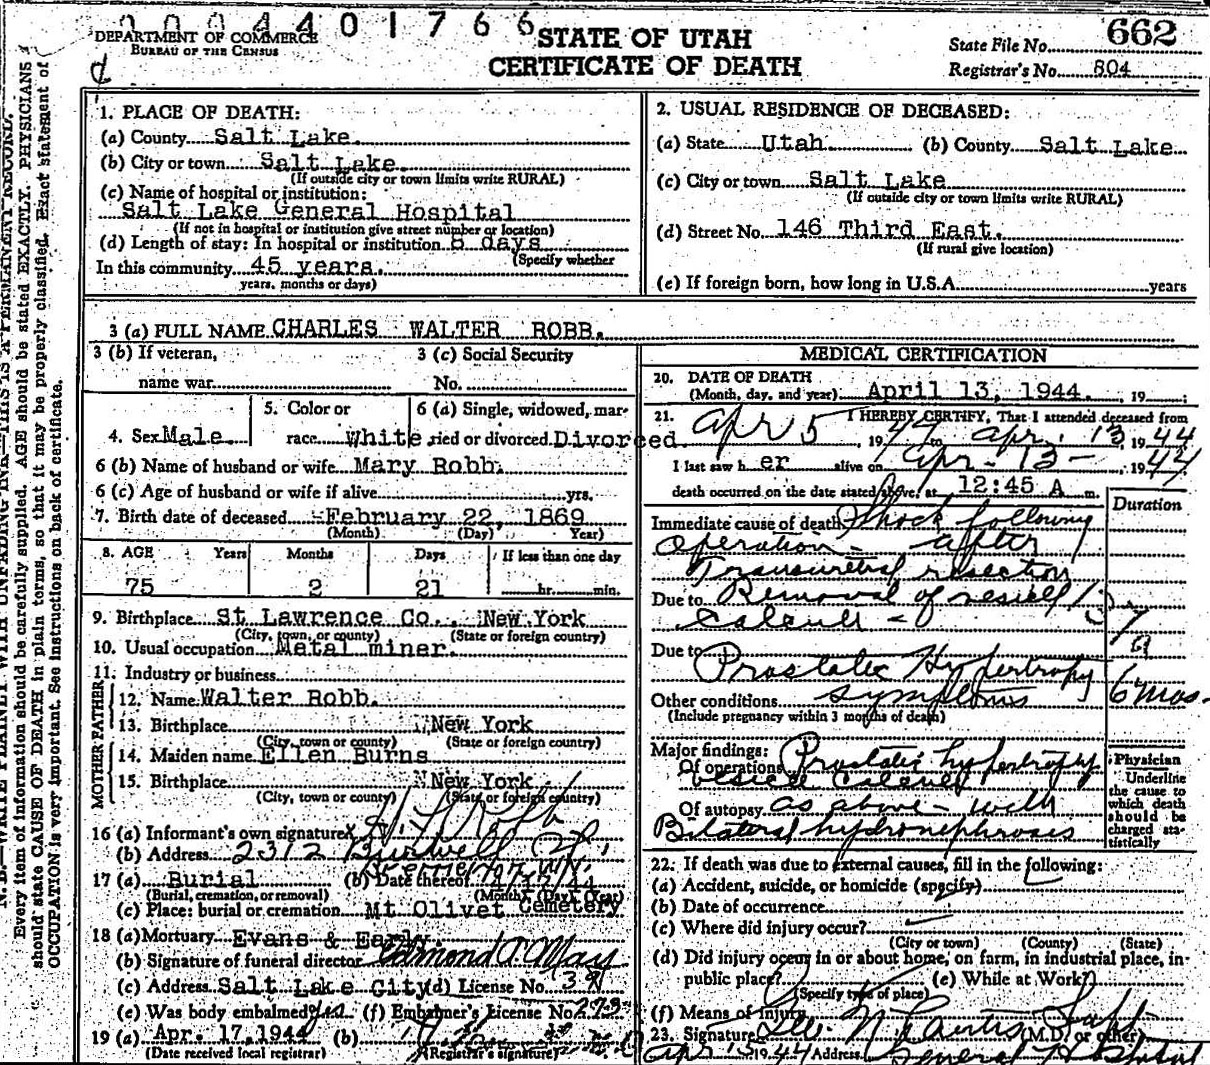 0004401766
DEPARTMENT OF COMMERCE
BUREAU OF THE CENSUS
STATE OF UTAH
CERTIFICATE OF DEATH
State File No. 662
Registrar's No. 804
1. PLACE OF DEATH:
(a) County Salt Lake.
(b) City or town Salt Lake.
(If outside city or town limits write RURAL)
(c) Name of hospital or institution:
Salt Lake General Hospital
(If not in hospital or institution give street number or location)
(d) Length of stay: In hospital or institution 8 days
(Specify whether
In this community 45 years.
years, months or days)
2. USUAL RESIDENCE OF DECEASED:
(a) State Utah (b) County Salt Lake
(c) City or town Salt Lake
(If outside city or town limits write RURAL)
(d) Street No. 146 Third East.
(If rural give location)
(e) If foreign born, how long in U.S.A. years
3 (a) FULL NAME CHARLES WALTER ROBB.
3 (b) If veteran,
name war
3 (c) Social Security
No.
4. Sex Male. 5. Color or race White 6 (a) Single, widowed, married or divorced. Divorced.
6 (b) Name of husband or wife Mary Robb.
6 (c) Age of husband or wife if alive yrs.
7. Birth date of deceased February 22, 1869
(Month) (Day) Year)
8. AGE Years Months Days If less than one day
75 2 21 hr. min.
9. Birthplace St Lawrence Co., New York
(City, town, or county) (State or foreign country)
10. Usual occupation Metal miner.
11. Industry or business
FATHER
12. Name Walter Robb.
13. Birthplace New York
(City, town or county) (State or foreign country)
MOTHER
14. Maiden name Ellen Burns
15. Birthplace New York
(City, town or county) (State or foreign country)
16 (a) Informant's own signature Robb
(b) Address 2312
17 (a) Burial (b) Date thereof 44
(Burial, cremation, or removal) (Month) (Day) (Year)
(c) Place: burial or cremation Mt Olivet Cemetery
18 (a) Mortuary Evans & Early.
(b) Signature of funeral director Edmond A. May
(c) Address Salt Lake City (d) License No.
(e) Was body embalmed yes (f) Embalmer's License No. 273
19 (a) Apr. 17, 1944 (b)
(Date received local registrar) (Registrar's signature)
MEDICAL CERTIFICATION
20. DATE OF DEATH
(Month, day, and year) April 13, 1944. , 19 ;
21. I HEREBY CERTIFY, That I attended deceased from
Apr 5, 1944 to Apr. 13, 1944
I last saw h er alive on Apr - 13 -, 1944
death occurred on the date stated above, at 12:45 A m.
Duration
Immediate cause of death Shock following
operation - after
Transurethral resection
Due to Removal of vesicle
Calculi -
Due to Prostatic Hypertropy
symptoms 6 mos-
Other conditions
(Include pregnancy within 3 months of death)
Major findings:
Of operations Prostatic hypertrophy
vesicle calculi
Of autopsy as above - with
Bilateral hydronephrosis
Physician
Underline the cause to which death should be charged statistically
22. If death was due to external causes, fill in the following:
(a) Accident, suicide, or homicide (specify)
(b) Date of occurrence
(c) Where did injury occur?
(City or town) (County) (State)
(d) Did injury occur in or about home, on farm, in industrial place, in
public place? (e) While at Work?
(Specify type of place)
(f) Means of injury
23. Signature Curtis Supt (M.D. or other)
Apr 13 1944 Address General Hospital
N. B.—WRITE PLAINLY WITH UNFADING INK—THIS IS A PERMANENT RECORD.
Every item of information should be carefully supplied. AGE should be stated EXACTLY. PHYSICIANS
should state CAUSE OF DEATH in plain terms, so that it may be properly classified. Exact statement of
OCCUPATION is very important. See instructions on back of certificate.